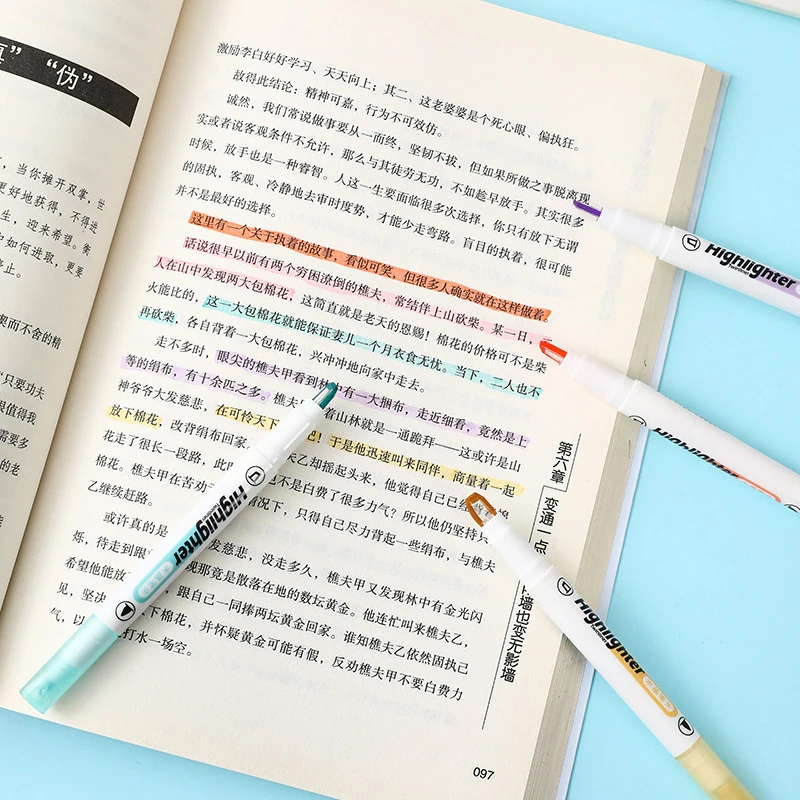 真” “伪”
，当你摊开双掌，世
更好地获得，不得进
生，迎来希望。衡
中如何进取，更要
停止。
奥而不舍的精
“只要功夫
很值得我
需要多
的老
激励李白好好学习、天天向上；其二、这老婆婆是个死心眼、偏执狂。
故得此结论：精神可嘉，行为不可效仿。
诚然，我们常说做事要从一而终，坚韧不拔，但如果所做之事脱离现
实或者说客观条件不允许，那么与其徒劳无功，不如趁早放手。其实很多
时候，放手也是一种睿智。人这一生要面临很多次选择，你只有放下无谓
的固执，客观、冷静地去审时度势，才能少走弯路。盲目的执着，很可能
并不是最好的选择。
这里有一个关于执着的故事，看似可笑，但很多人确实就在这样做着。
话说很早以前有两个穷困潦倒的樵夫，常结伴上山砍柴。某一日，
人在山中发现两大包棉花，这简直就是老天的恩赐！棉花的价格可不是柴
火能比的，这一大包棉花就能保证妻儿一个月衣食无忧。当下，二人也不
再砍柴，各自背着一大包棉花，兴冲冲地向家中走去。
走不多时，眼尖的樵夫甲看到林中有一大捆布，走近细看，竟然是上
等的绢布，有十余匹之多。樵夫 着山林就是一通跪拜——这或许是山
神爷爷大发慈悲，在可怜天下 ！于是他迅速叫来同伴，商量着一起
放下棉花，改背绢布回家。 乙却摇起头来，他觉得自己已经 棉
花走了很长一段路，此 不是白费了很多力气？所以他仍坚持只
棉花。樵夫甲在苦劝 情况下，只得自己尽力背起一些绢布，与樵夫
乙继续赶路。
或许真的是 发慈悲，没走多久，樵夫甲又发现林中有金光闪
烁，待走到跟 现那竟是散落在地的数坛黄金。他连忙叫来樵夫乙，
希望他能放 ，跟自己一同捧两坛黄金回家。谁知樵夫乙依然固执己
见，坚决 下棉花，并怀疑黄金可能有假，反劝樵夫甲不要白费力
气，以 打水一场空。
第六章
变通一点
墙也变无影墙
097
Highlighter
Highlighter
Highlighter
Highlighter